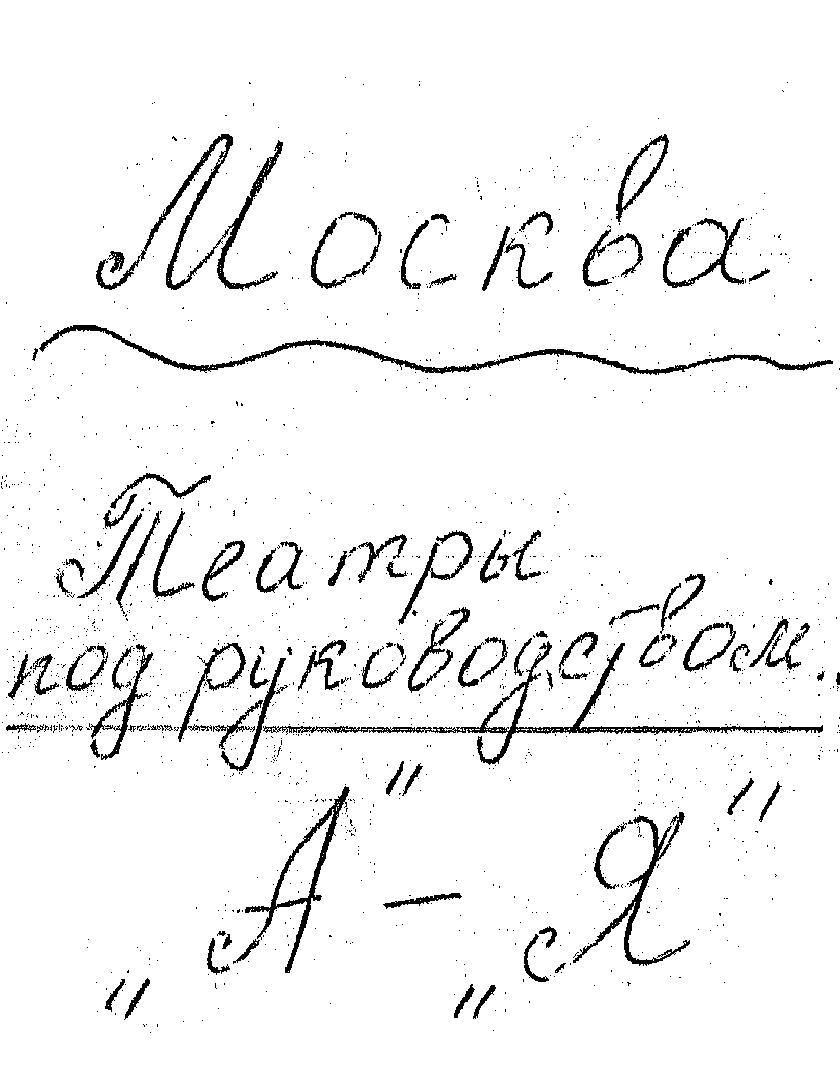 Москва
Театры
под руководством..
„А" – „Я"